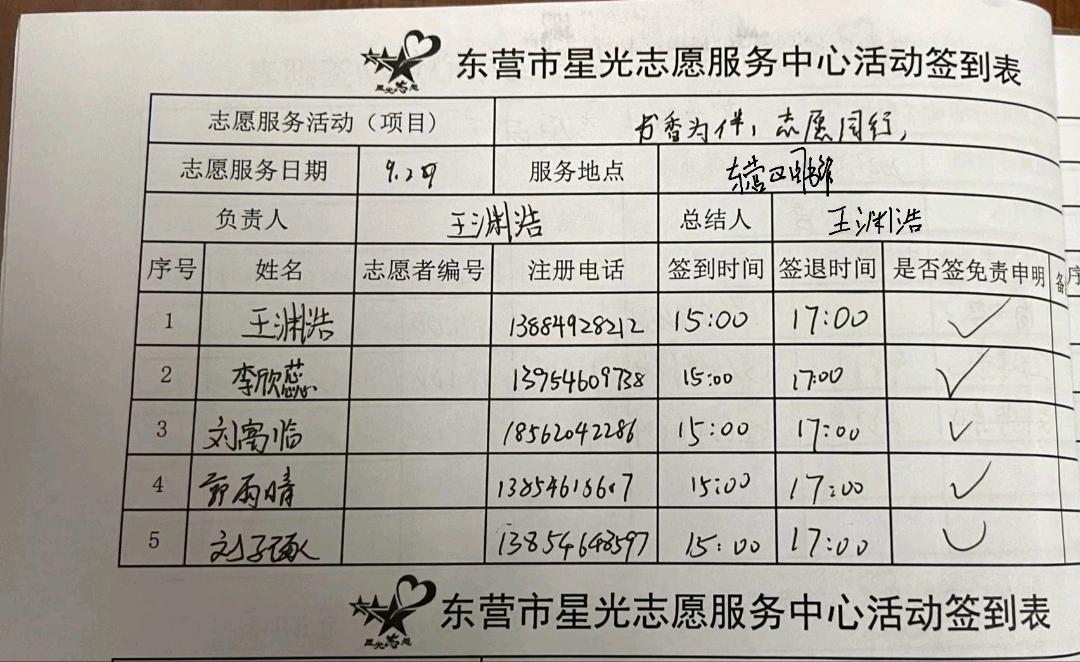 星光志愿
东营市星光志愿服务中心活动签到表
志愿服务活动（项目） 书香为伴，志愿同行，
志愿服务日期 9.29 服务地点 东营
负责人 王渊浩 总结人 王渊浩
序号 姓名 志愿者编号 注册电话 签到时间 签退时间 是否签免责申明 备 序
1 王渊浩 13884928212 15:00 17:00 ✓
2 李欣蕊 13954609738 15:00 17:00 ✓
3 刘寓临 18562042286 15:00 17:00 ✓
4 雨晴 15:00 17:00 ✓
5 刘子琢 13854648597 15:00 17:00 ✓
星光志愿
东营市星光志愿服务中心活动签到表